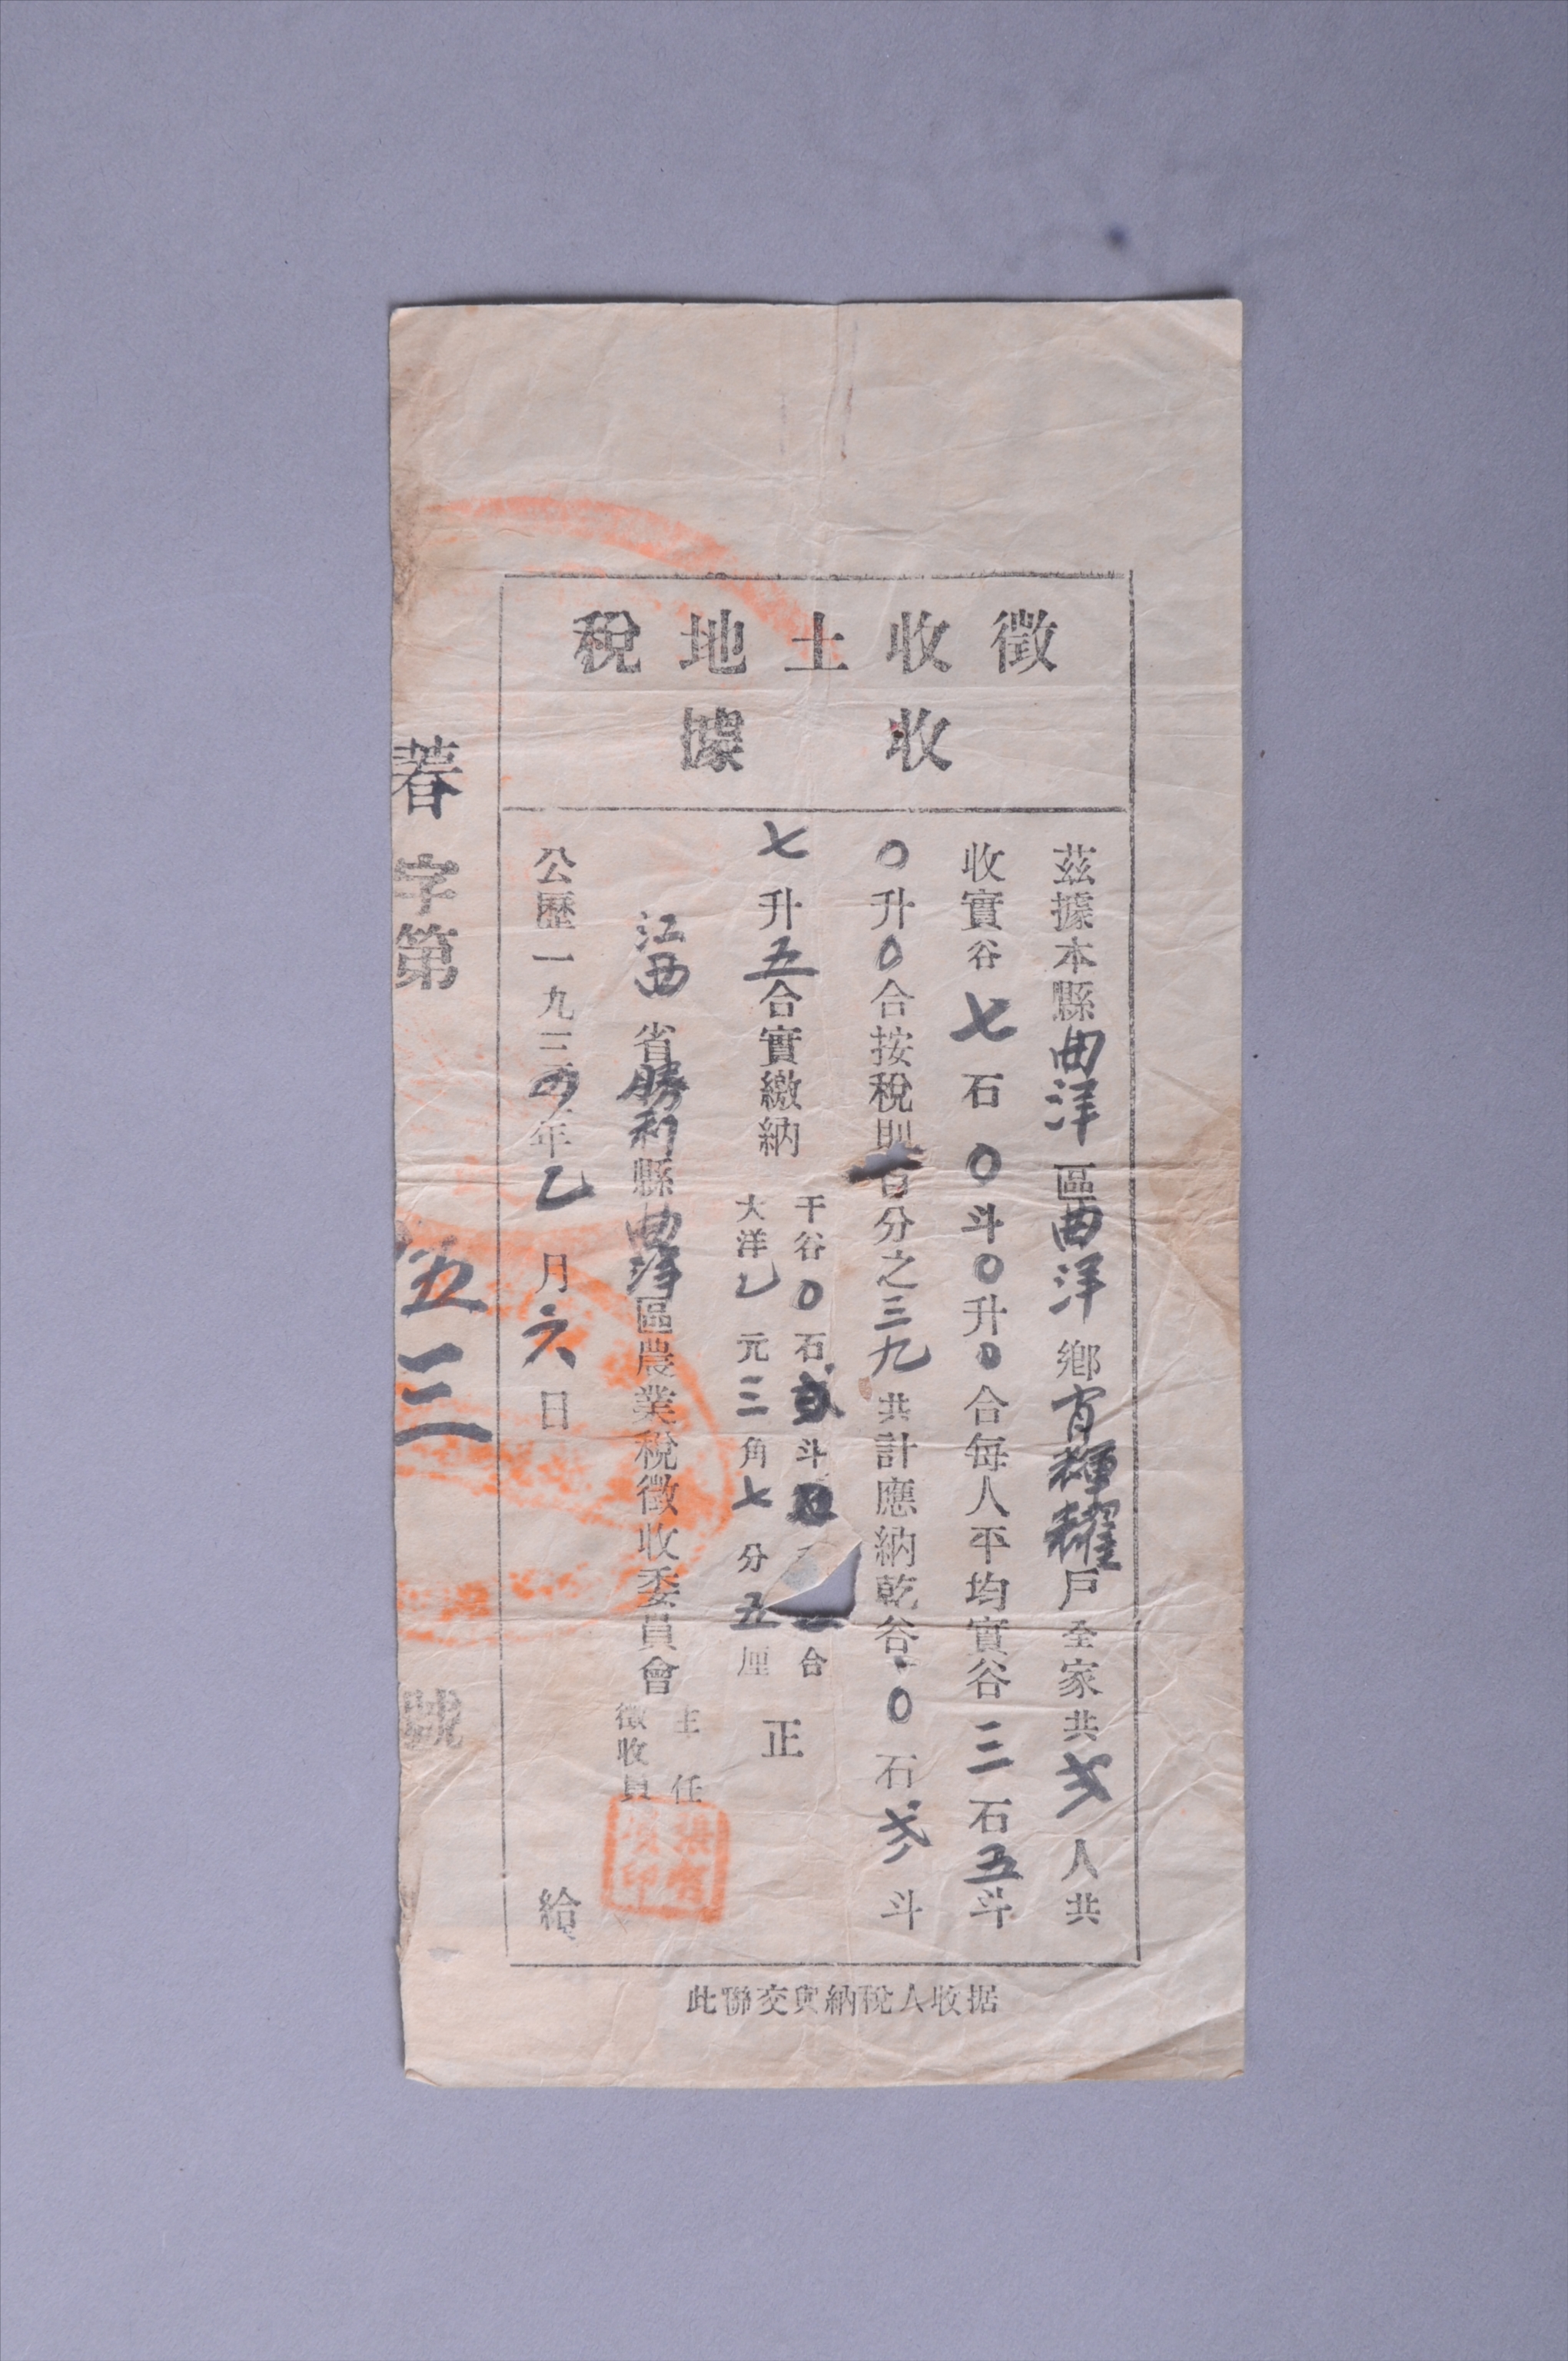 徵收土地稅
收據
茲據本縣曲洋區曲洋鄉 戶全家共弍人共
收實谷七石0斗0升0合每人平均實谷三石五斗
0升0合按稅則百分之三九共計應納乾谷0石弍斗
七升五合實繳納
干谷0石弍斗 合
大洋乙元三角七分五厘
正
江西省勝利縣曲洋區農業稅徵收委員會
主任
徵收員
公歷一九三四年乙月六日
給
字第 伍三 號
此聯交與納稅人收据